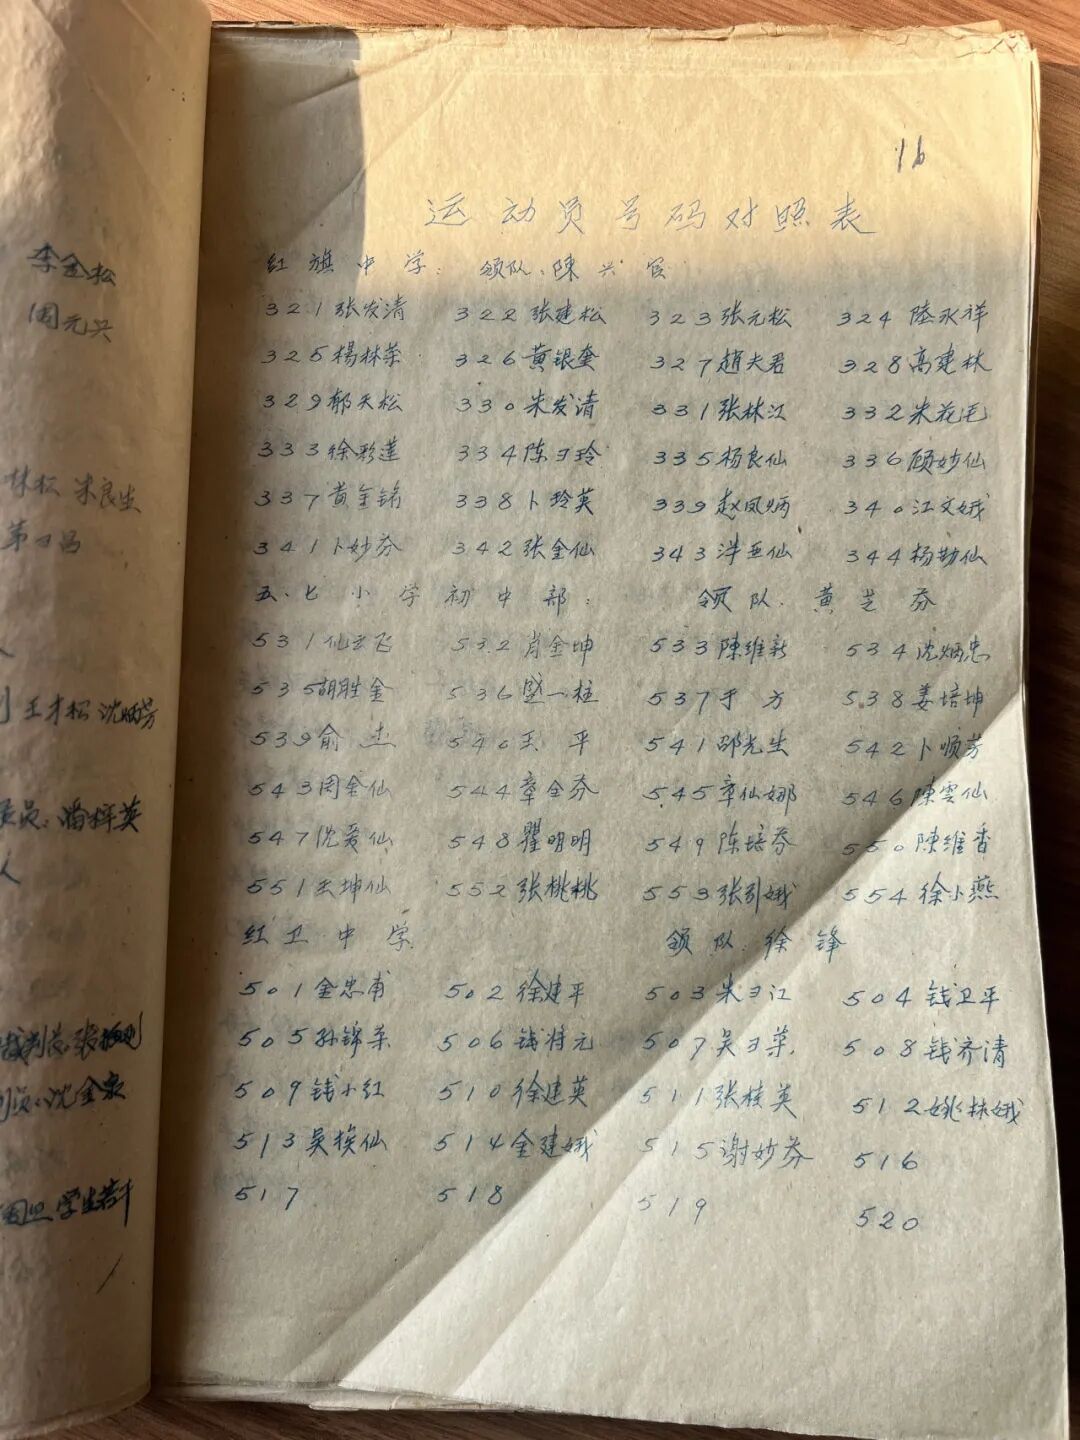 李金松
周元兴
林松 朱良生
王才松 沈炳芳
潘梓英
人
沈金泉
16
运动员号码对照表
红旗中学: 领队:陳兴官
321张发清 322张建松 323张元松 324陸永祥
325楊林荣 326黄银奎 327趙夫君 328高建林
329郁天松 330朱发清 331张林江 332朱花毛
333徐彩莲 334陈彐玲 335杨良仙 336顾妙仙
337黄金铭 338卜玲英 339赵凤炳 340江文娥
341卜妙芬 342张金仙 343 344杨勤仙
五·七小学初中部: 领队:黄芝芬
531仙云飞 532肖金坤 533陳维新 534沈炳忠
535胡胜金 536盛一柱 537于方 538姜培坤
539俞杰 540王平 541邵光生 542卜顺芳
543周金仙 544章全芬 545章仙娜 546陳雲仙
547沈爱仙 548瞿明明 549陈培芬 550陳维香
551王坤仙 552张桃桃 553张引娥 554徐小燕
红卫中学 领队:徐锋
501金忠甫 502徐建平 503朱彐江 504钱卫平
505孙锦荣 506钱将元 507吴彐荣 508钱齐清
509钱小红 510徐建英 511张桂英 512姚林娥
513吴挨仙 514金建娥 515谢妙芬 516
517 518 519 520